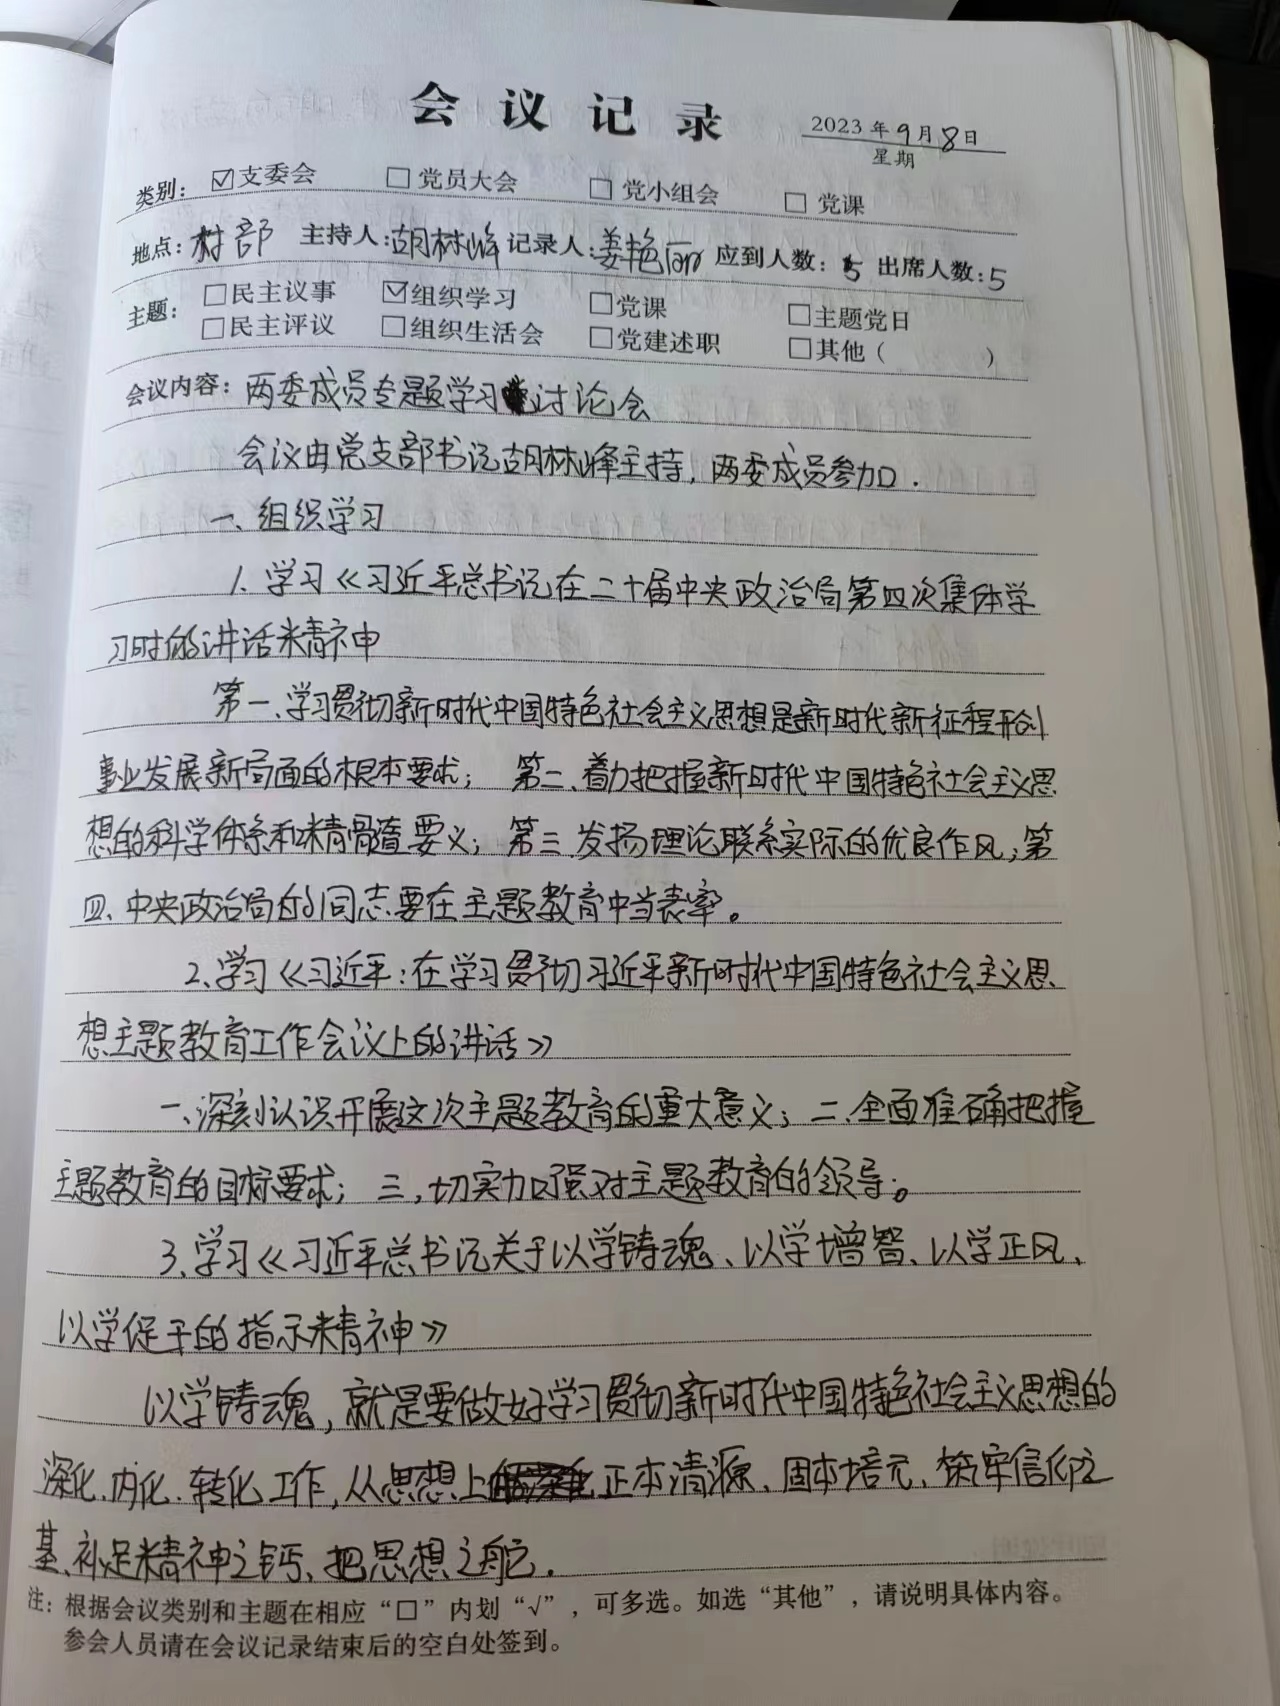 会议记录
2023年9月8日
星期
类别：☑支委会 □党员大会 □党小组会 □党课
地点：村部 主持人：胡林峰 记录人：姜艳丽 应到人数：5 出席人数：5
主题：□民主议事 ☑组织学习 □党课 □主题党日
□民主评议 □组织生活会 □党建述职 □其他（ ）
会议内容：两委成员专题学习讨论会
会议由党支部书记胡林峰主持，两委成员参加.
一、组织学习
1.学习《习近平总书记在二十届中央政治局第四次集体学
习时的讲话精神
第一、学习贯彻新时代中国特色社会主义思想是新时代新征程开创
事业发展新局面的根本要求；第二、着力把握新时代中国特色社会主义思
想的科学体系和精髓要义；第三、发扬理论联系实际的优良作风；第
四、中央政治局的同志要在主题教育中当表率。
2.学习《习近平：在学习贯彻习近平新时代中国特色社会主义思
想主题教育工作会议上的讲话》
一、深刻认识开展这次主题教育的重大意义；二、全面准确把握
主题教育的目标要求；三、切实加强对主题教育的领导。
3.学习《习近平总书记关于以学铸魂、以学增智、以学正风、
以学促干的指示精神》
以学铸魂，就是要做好学习贯彻新时代中国特色社会主义思想的
深化、内化、转化工作，从思想上正本清源、固本培元、筑牢信仰之
基、补足精神之钙、把思想之舵.
注：根据会议类别和主题在相应“□”内划“√”，可多选。如选“其他”，请说明具体内容。
参会人员请在会议记录结束后的空白处签到。